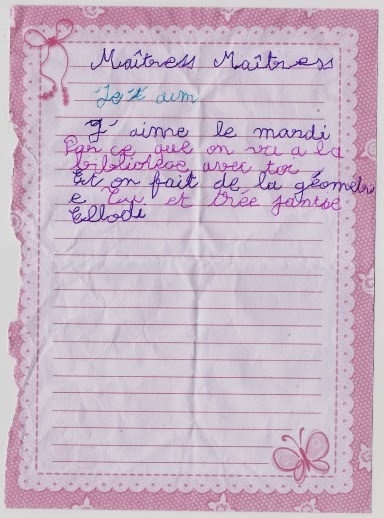 Maîtress Maîtress
Je t aim
J' aime le mardi
Par ce que on va a la
bibliotèce avec toi
Et on fait de la géometr
e Tu et trée jantie
Ellodi